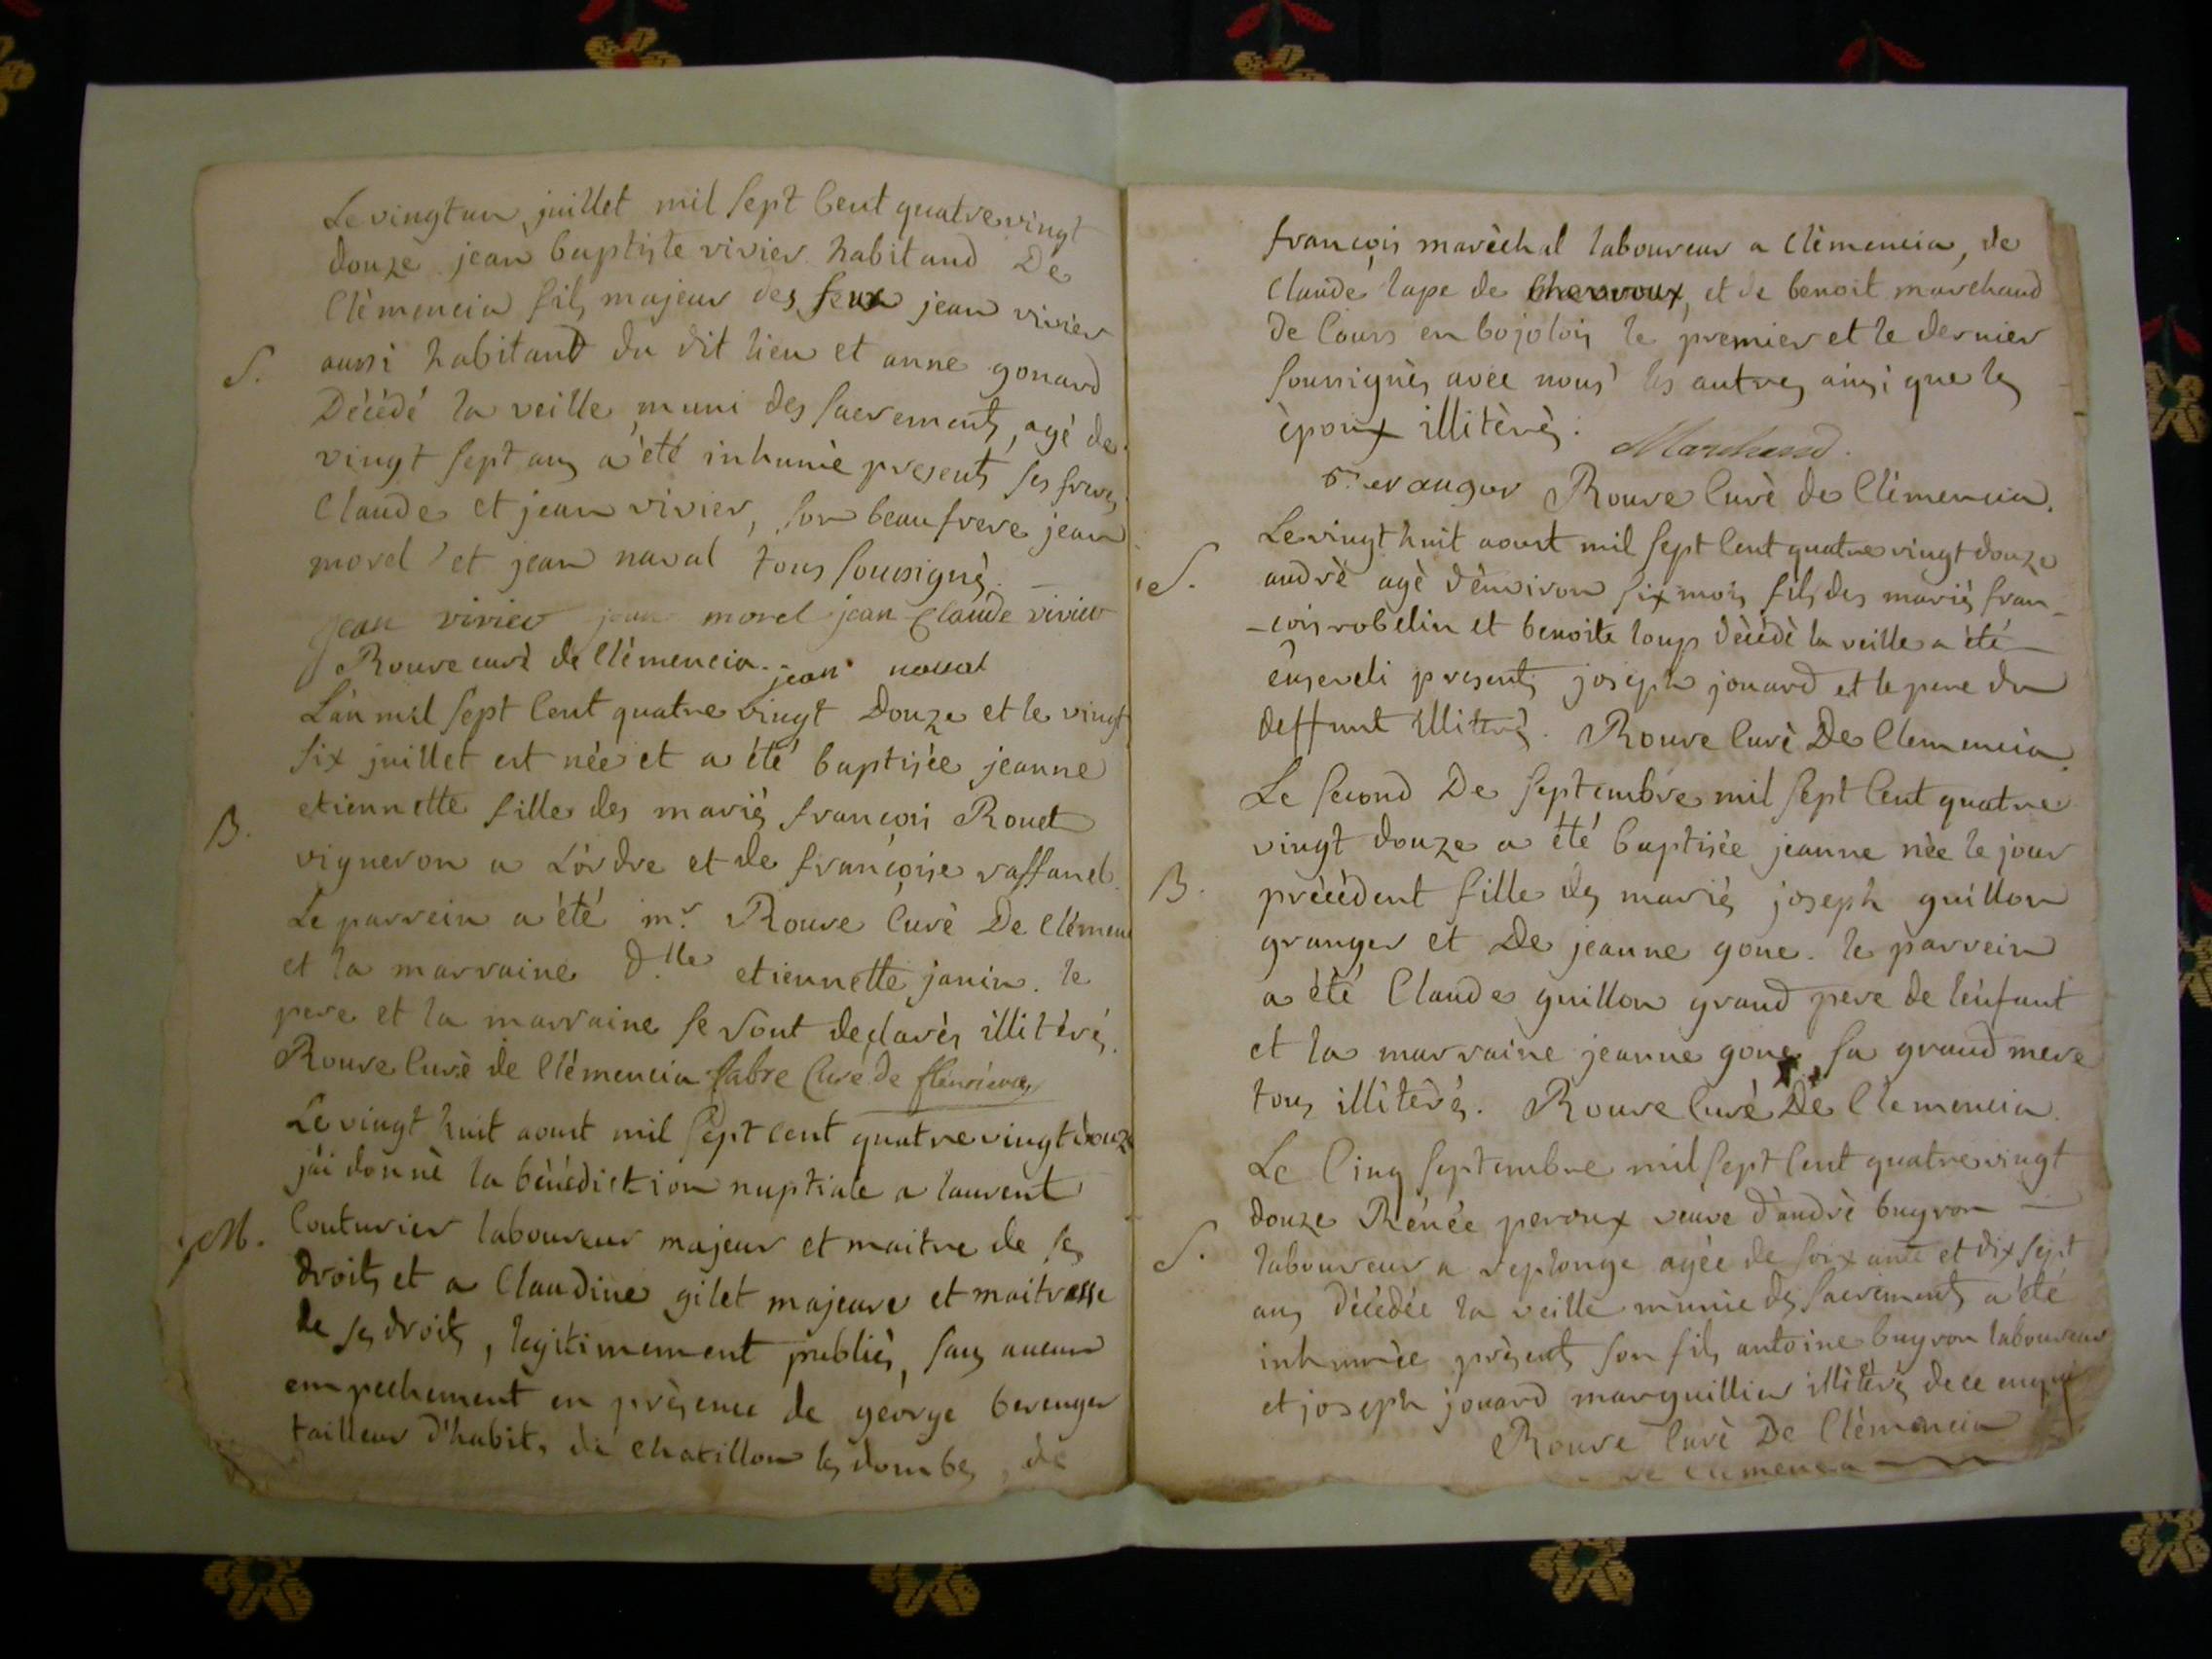 Le vingt un juillet mil sept cent quatre vingt
douze jean baptiste vivier habitand De
Clémencia fils majeur des feux jean vivier
S. aussi habitant du dit lieu et anne gonard
Décédé la veille, muni des sacrements, agé de
vingt sept ans a été inhumé presents ses freres
Claude et jean vivier, son beaufrere jean
morel et jean naval tous soussignés.
jean vivier jean morel jean Claude vivier
Rouve curé de Clémencia. jean naval
L'an mil sept cent quatre vingt Douze et le vingt
six juillet est née et a été baptisée jeanne
B. etiennette fille des mariés françois Rouet
vigneron a L'ordre et de françoise raffanel.
Le parrein a été mr. Rouve Curé De Clémen
et la marraine d.lle etiennette janin. le
pere et la marraine se sont declarés illitérés.
Rouve Curé de Clémencia fabre Curé de fleurieux
Le vingt huit aoust mil sept cent quatre vingt douze
j'ai donné la bénédiction nuptiale a laurent
M. Couturier laboureur majeur et maitre de ses
droits et a Claudine gilet majeure et maitresse
de ses droits, legitimement publiés, sans aucun
empechement en présence de george berenger
tailleur d'habit, de chatillon les dombes, de
françois maréchal laboureur a Clémencia, de
Claude lape de Chavoux, et de benoit marchand
de Cours en bojolois le premier et le dernier
soussignés avec nous les autres ainsi que les
époux illitérés. Marchand.
Rouve Curé de Clémencia.
Le vingt huit aoust mil sept cent quatre vingt douze
S. andré agé d'environ six mois fils des mariés fran-
-cois robelin et benoite loup décédé la veille a été
enseveli presents joseph jouard et le pere du
deffunt illiterés. Rouve Curé De Clemencia.
Le second De septembre mil sept cent quatre
vingt douze a été baptisée jeanne née le jour
B. précédent fille des mariés joseph guillon
granger et De jeanne goue. le parrein
a été Claude guillon grand pere de l'enfant
et la marraine jeanne goue sa grand mere
tous illitérés. Rouve Curé De Clémencia.
Le Cinq septembre mil sept cent quatre vingt
douze Rénée peroux veuve d'andré buyron
S. laboureur a replonge agée de soixante et dix sept
ans décédée la veille munie des sacrements a été
inhumée présents son fils antoine buyron laboureur
et joseph jouard marguillier illitérés de ce enquis
Rouve Curé De Clémencia